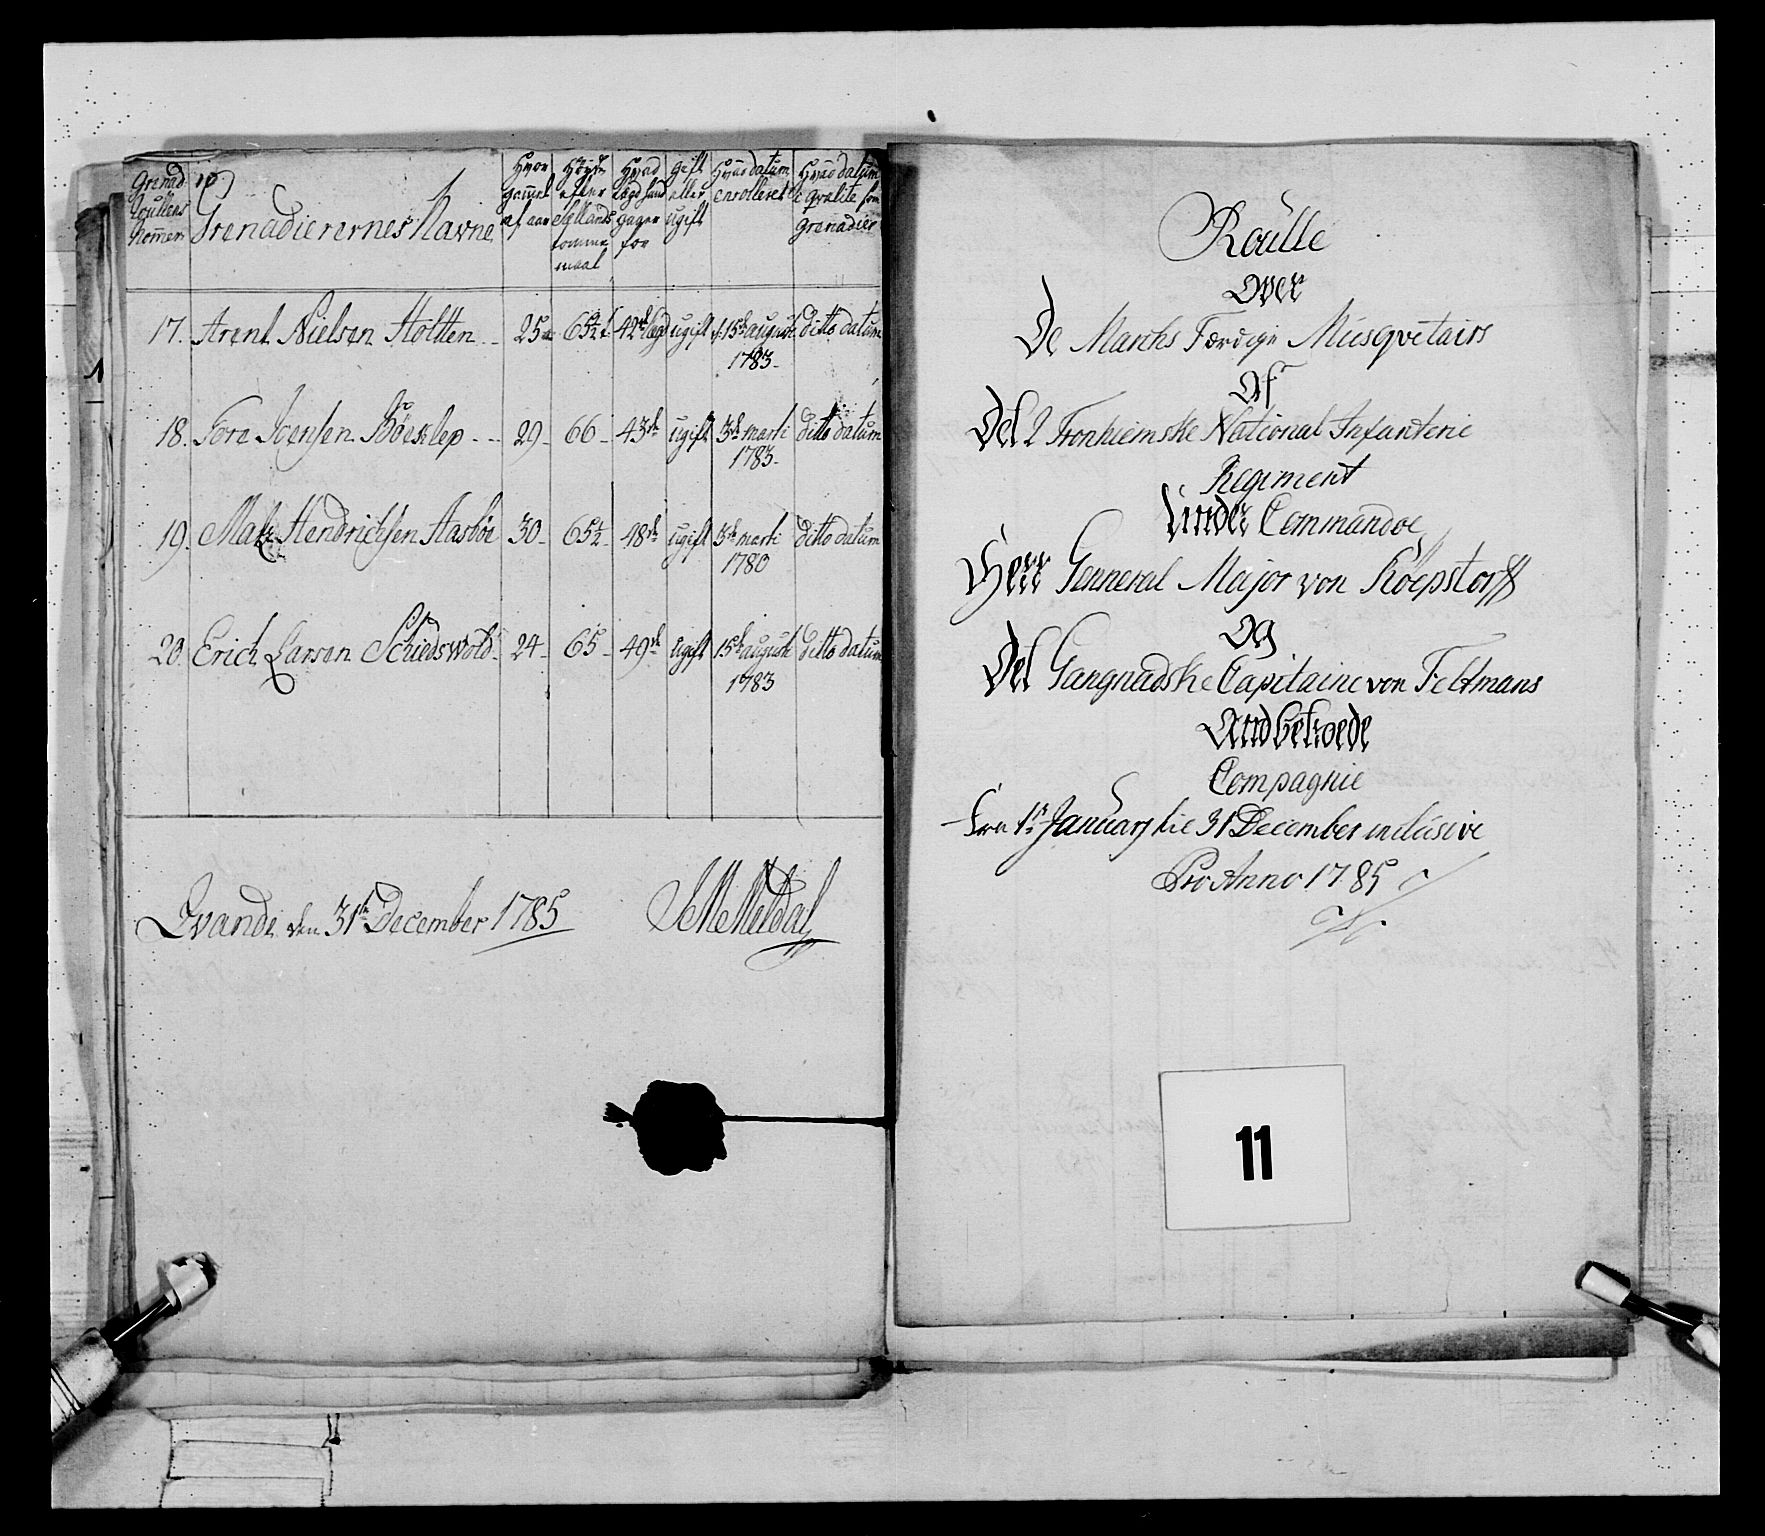 Grenad
Roullens
Nommer
Grenadierernes Navne
Hvor
gammel
af aar
Høyde
efter
Sællands
tomme
maal
Hvad
Lægd hand
gager
for
gift
eller
ugift
Hvad datum
enrolleret
Hvad datum
i qvalite som
grenadier
17. Arent Nielsen Holtten 25 65½ 42de Lægd ugift 15de august 1783 ditto datum
18. Tore Joensen 29 66 43de ugift 3de marti 1783 ditto datum
19. Mats Hendrichsen Aasbøe 30 65½ 48de ugift 3de marti 1780 ditto datum
20. Erich Larsen Schiedswold 24 65 49de ugift 15de august 1783 ditto datum
Qvande den 31te December 1785
Meldal
Roulle
Over
De Marchs Færdige Musqvetairs
Af
Det 2 Tronhiemske National Infanterie
Regiment
Under Commandoe
Herr Genneral Major von Kōepstorff
Og
Det Gangnadske Capitaine von Feltmans
Andbetroede
Compagnie
Fra 1te Januarj til 31 December inclusive
Pro Anno 1785
11